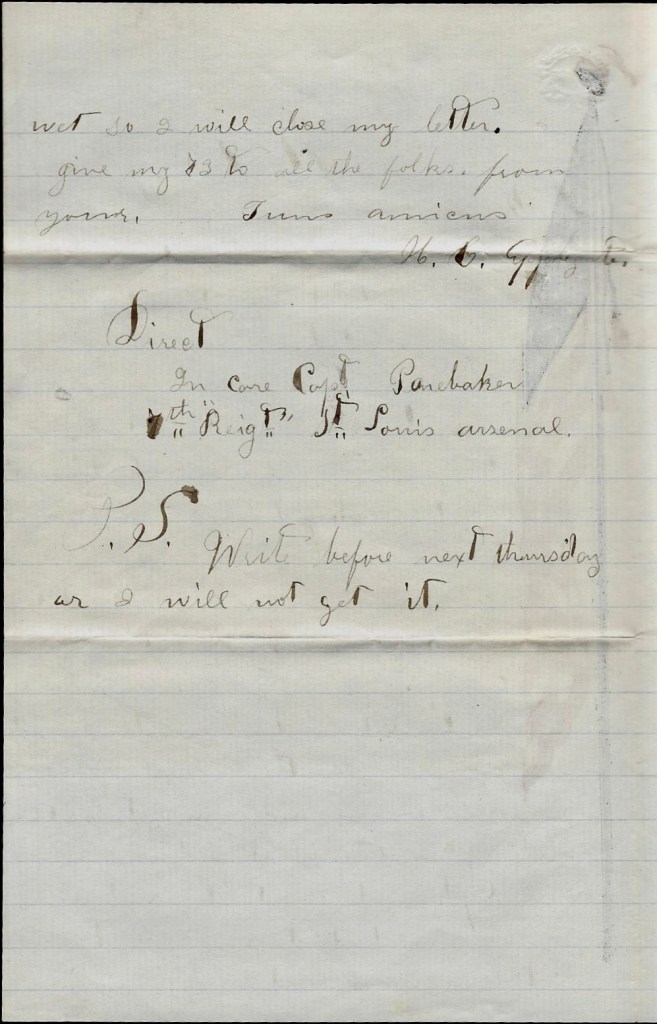 wet so I will close my letter.
give my 73 to all the folks. from
yours. Tuus amicus
H. C.
Direct
In care Capt Panebaker
7th Reigt St Louis arsenal.
P. S. Write before next thursday
or I will not get it.